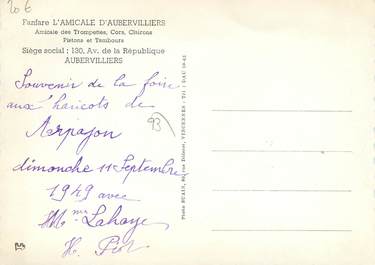 20 €
Fanfare L'AMICALE D'AUBERVILLIERS
Amicale des Trompettes, Cors, Clairons
Pistons et Tambours
Siège social : 130, Av. de la République
AUBERVILLIERS
Souvenir de la foire
aux haricots de
Arpajon
93
dimanche 11 Septembre
1949 avec
Mme Lahaye
H.